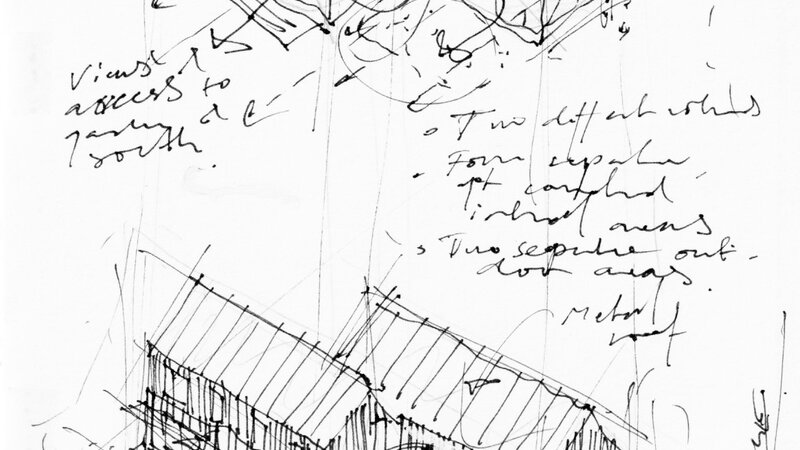 Views &
access to
garden &
south.
Two different
Form separate
yet connected
internal areas
Two separate out-
door areas.
Metal
roof